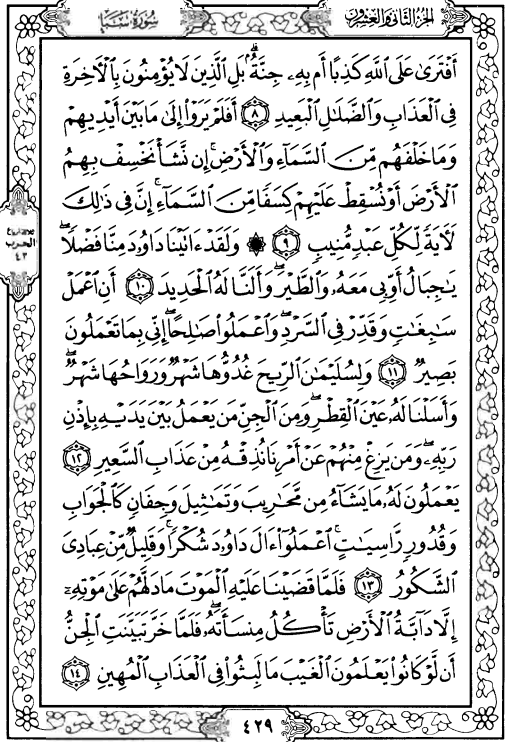 الجزء الثاني والعشرون
سورة سبأ
أَفْتَرَىٰ عَلَى اللَّهِ كَذِبًا أَم بِهِۦ جِنَّةٌۢ ۗ بَلِ الَّذِينَ لَا يُؤْمِنُونَ بِالْأَخِرَةِ
فِى الْعَذَابِ وَالضَّلَٰلِ الْبَعِيدِ ٨ أَفَلَمْ يَرَوْا۟ إِلَىٰ مَا بَيْنَ أَيْدِيهِمْ
وَمَا خَلْفَهُم مِّنَ السَّمَآءِ وَالْأَرْضِ ۚ إِن نَّشَأْ نَخْسِفْ بِهِمُ
الْأَرْضَ أَوْ نُسْقِطْ عَلَيْهِمْ كِسَفًا مِّنَ السَّمَآءِ ۚ إِنَّ فِى ذَٰلِكَ
لَأَيَةً لِّكُلِّ عَبْدٍ مُّنِيبٍ ٩ ۞ وَلَقَدْ ءَاتَيْنَا دَاوُۥدَ مِنَّا فَضْلًا ۖ
يَٰجِبَالُ أَوِّبِى مَعَهُۥ وَالطَّيْرَ ۖ وَأَلَنَّا لَهُ الْحَدِيدَ ١٠ أَنِ اعْمَلْ
سَٰبِغَٰتٍ وَقَدِّرْ فِى السَّرْدِ ۖ وَاعْمَلُوا۟ صَٰلِحًا ۖ إِنِّى بِمَا تَعْمَلُونَ
بَصِيرٌ ١١ وَلِسُلَيْمَٰنَ الرِّيحَ غُدُوُّهَا شَهْرٌ وَرَوَاحُهَا شَهْرٌ ۖ
وَأَسَلْنَا لَهُۥ عَيْنَ الْقِطْرِ ۖ وَمِنَ الْجِنِّ مَن يَعْمَلُ بَيْنَ يَدَيْهِ بِإِذْنِ
رَبِّهِۦ ۖ وَمَن يَزِغْ مِنْهُمْ عَنْ أَمْرِنَا نُذِقْهُ مِنْ عَذَابِ السَّعِيرِ ١٢
يَعْمَلُونَ لَهُۥ مَا يَشَآءُ مِن مَّحَٰرِيبَ وَتَمَٰثِيلَ وَجِفَانٍ كَالْجَوَابِ
وَقُدُورٍ رَّاسِيَٰتٍ ۚ اعْمَلُوٓا۟ ءَالَ دَاوُۥدَ شُكْرًا ۚ وَقَلِيلٌ مِّنْ عِبَادِىَ
الشَّكُورُ ١٣ فَلَمَّا قَضَيْنَا عَلَيْهِ الْمَوْتَ مَا دَلَّهُمْ عَلَىٰ مَوْتِهِۦٓ
إِلَّا دَآبَّةُ الْأَرْضِ تَأْكُلُ مِنسَأَتَهُۥ ۖ فَلَمَّا خَرَّ تَبَيَّنَتِ الْجِنُّ
أَن لَّوْ كَانُوا۟ يَعْلَمُونَ الْغَيْبَ مَا لَبِثُوا۟ فِى الْعَذَابِ الْمُهِينِ ١٤
الحزب
٤٣
٤٢٩